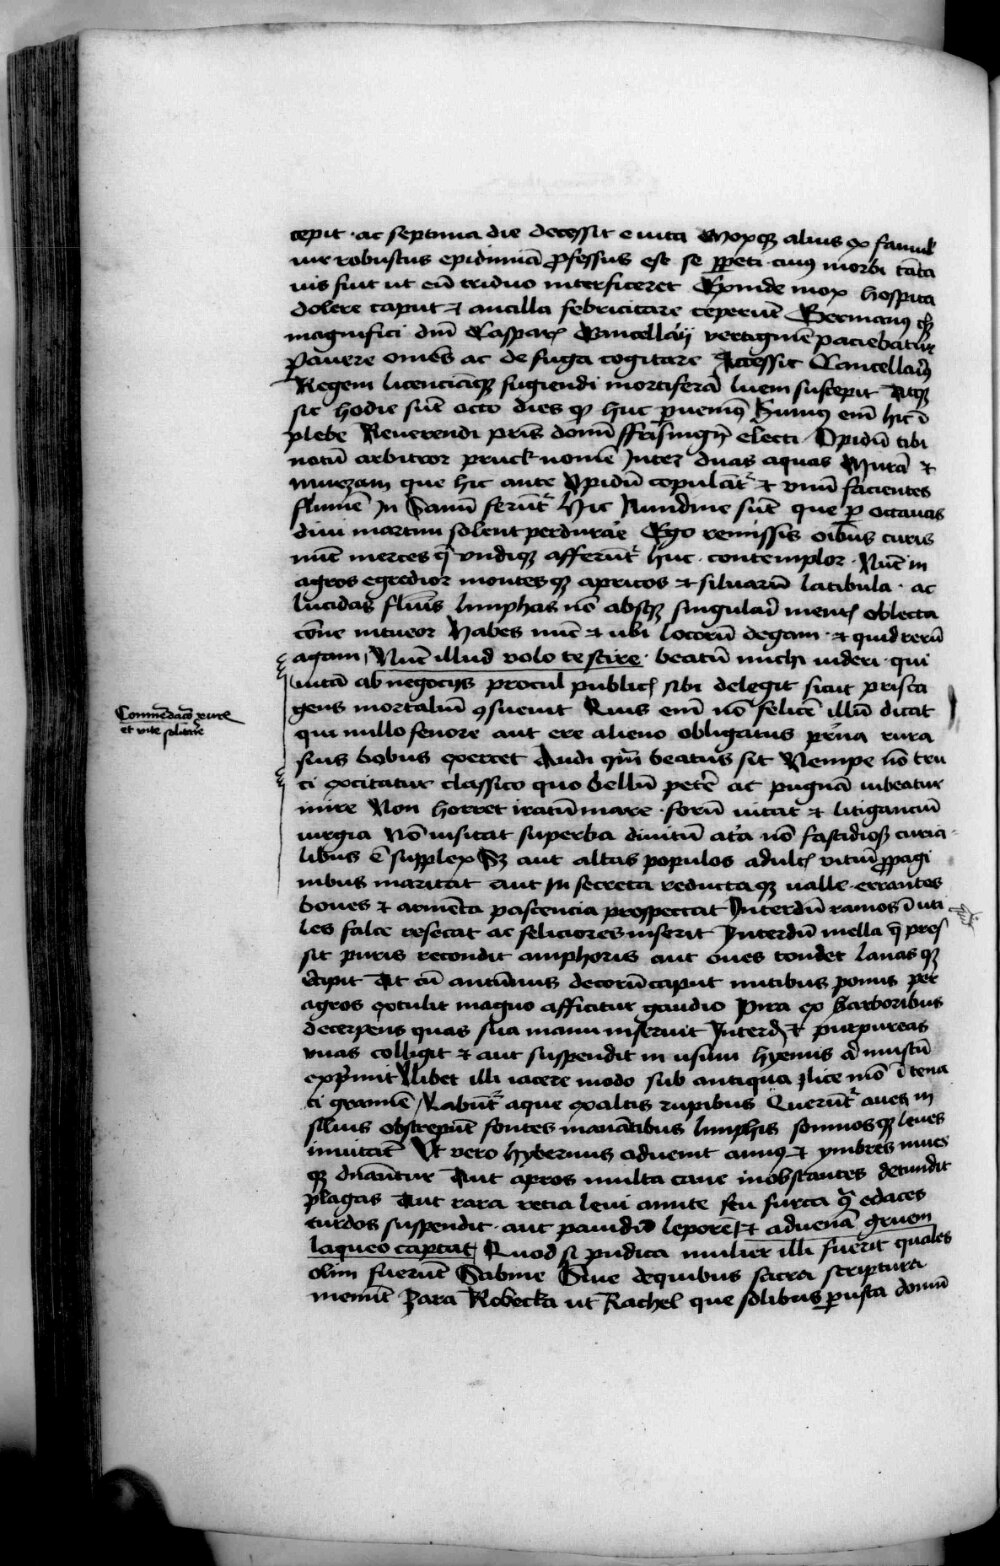 cepit · ac septima die decessit e vita Moxqz alius ex famul
vir robustus epidimiā ꝓfessus est se ꝑpeti cuiꝰ morbi tāta
vis fuit ut eū triduo interficeret Exinde mox hospita
dolere caput et ancilla febricitare ceperūt Germanꝰ qz
magnifici dnī Casparis Cancellarij vertiginē paciebatur
Pavere omēs ac de fuga cogitare Accessit Cancellariꝰ
Regem licenciāqz fugiendi mortiferā luem suscepit Atqz
sic hodie sūt octo dies qꝫ huc ꝑvenimꝰ Sumꝰ enī hic ī
plebe Reverendi pris domī ffrisingñ electi Opidū tibi
notū arbitror pruck nomē Inter duas aquas Murā et
muerzam que hic ante Opidū copulāt᷑ et unū facientes
flumē In Sanū ferūt᷑ Hic Nundine sūt que ꝑ octavas
divi martini solent perdurare Ego remissis oībus curis
nūc merces q̄ undiqz afferūt᷑ huc · contemplor · Nūc in
agros egredior montesqz apricos et silvarū latibula · ac
lucidas fluvīs limphas nō absqz singulari mentis oblecta
cōne intueor Habes nūc et ubi locorū degam · et quid rerū
agam / Nūc illud volo te scire · beatū michi videri · qui
vitā ab negocijs procul publicis sibi delegit sicut prisca
gens mortaliū ꝯsuevit Quis enī nō felicē illū dicat
Commēdacō rure
et vite solitarie
qui nullo fenore aut ere alieno obligatus pr̄na rura
suis bobus exercet Audi qm̄ beatus sit Nempe nō tru
ci excitatur classico quo bellū petere ac pugnā iubeatur
inire Non horret iratū mare · forū vitat et litiganciū
iurgia Nō visitat superba divitū atria nō fastidiosꝭ curia
libus ē supplex Sꝫ aut altas populos adultꝭ vitiū ꝓpagi
nibus maritat aut In secreta reductaqz valle errantes
boves et armēta pascencia prospectat Interdū ramos īuti
les falce resecat ac feliciores inserit Interdū mella q̄ pres
sit puris recondit amphoris aut oves tondet lanas qz
capit At cū autūnus decorū caput mitibus pomis per
agros extulit magno afficitur gaudio Pira ex Harboribus
decerpens quas sua manu inseruit Interdꝫ et purpureas
uvas colligit et aut suspendit in usum hyemis aut mustū
exprimit Libet illi iacere modo sub antiqua Ilice mō ī tena
ci gramīe / Labūt᷑ aque exaltis rupibus Querūt᷑ aves in
silvis obstrepūt fontes manātibus limphis somnosqz leves
invitāt Ut vero hybernus advenit annꝰ et ymbres nives
qz dnāntur Aut apros multa cane inobstantes detrudit
plagas Aut rara recia levi amite seu furca q̄ edaces
turdos suspendit · aut pavidū leporē et advenā gruem
laqueo captat / Quod si pudica mulier illi fuerit quales
olim fuerūt Sabine Sive de quibus sacra scriptura
meminit Zara Rebecka ut Rachel que solibus ꝑusta domū